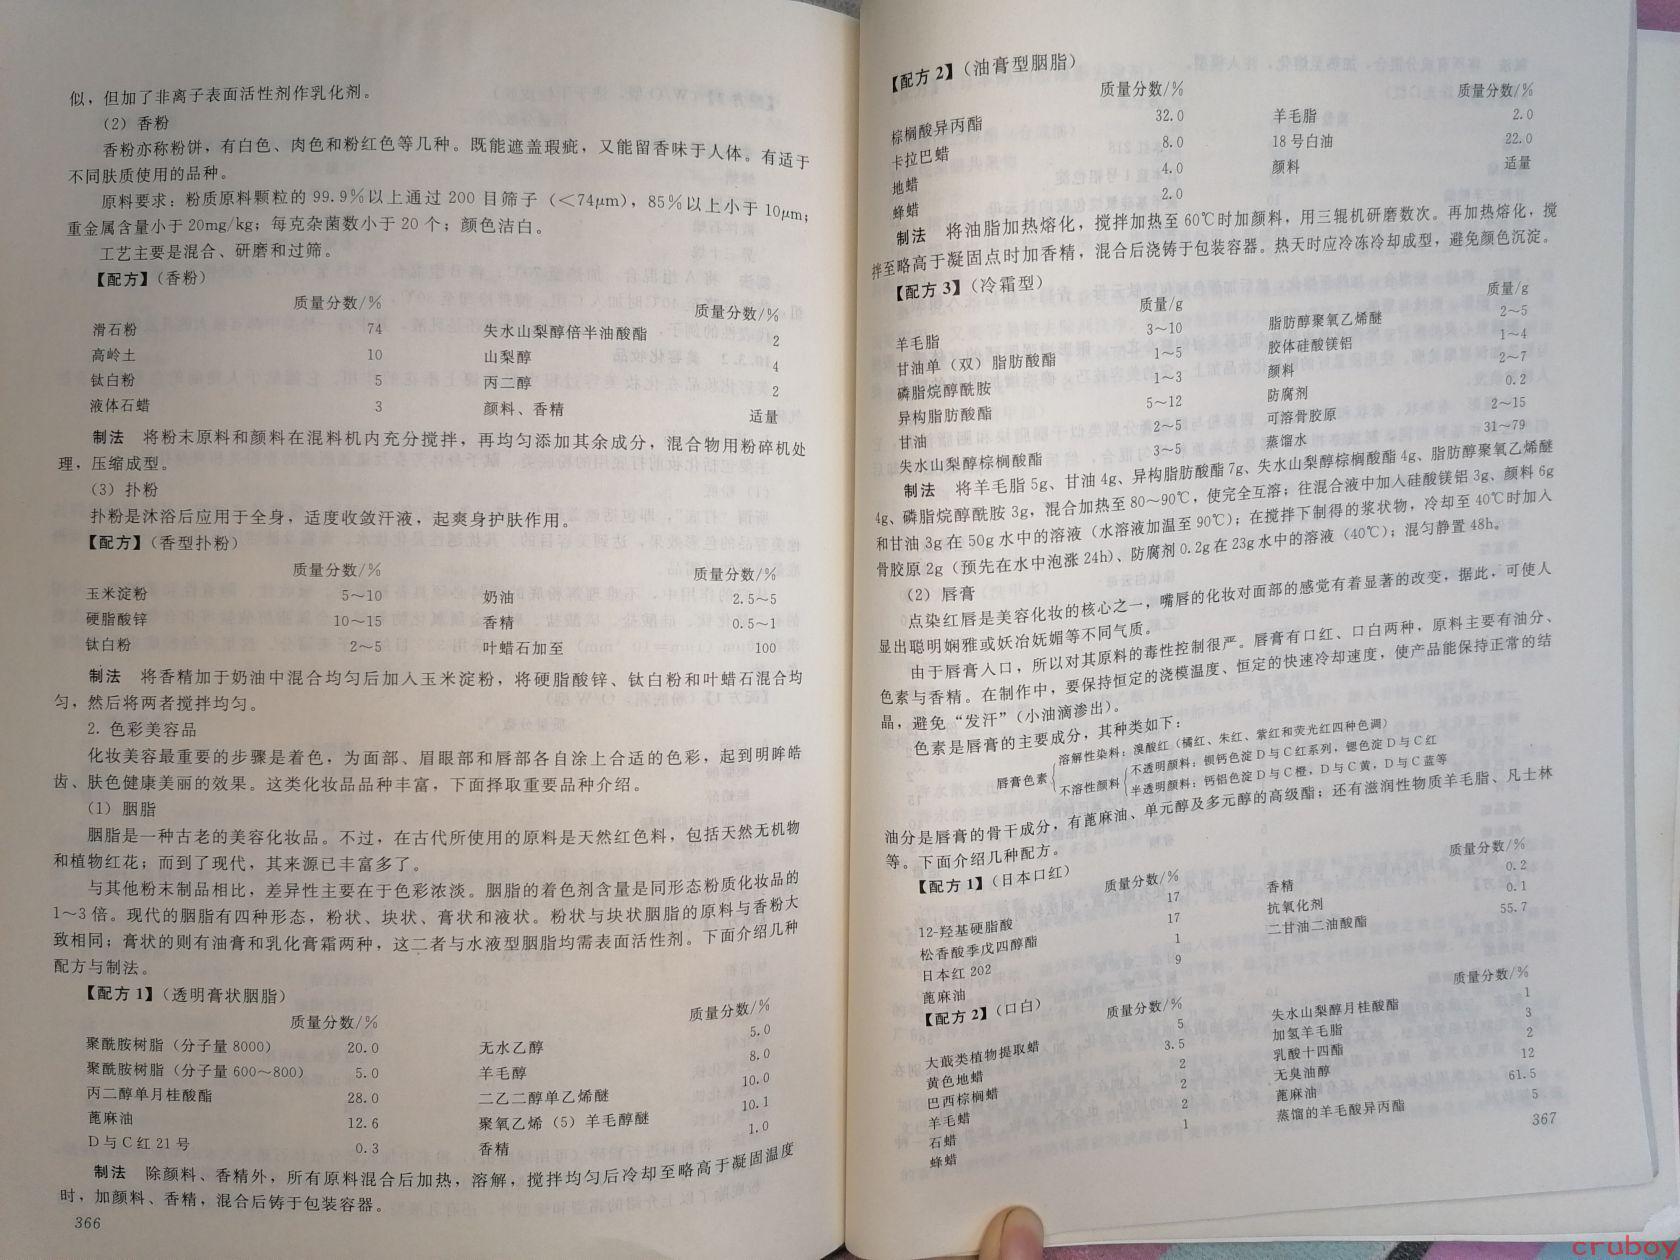 似，但加了非离子表面活性剂作乳化剂。
（2）香粉
香粉亦称粉饼，有白色、肉色和粉红色等几种。既能遮盖瑕疵，又能留香味于人体。有适于
不同肤质使用的品种。
原料要求：粉质原料颗粒的 99.9%以上通过 200 目筛子（＜74μm），85%以上小于 10μm；
重金属含量小于 20mg/kg；每克杂菌数小于 20 个；颜色洁白。
工艺主要是混合、研磨和过筛。
【配方】（香粉）
质量分数/% 质量分数/%
滑石粉 74 失水山梨醇倍半油酸酯 2
高岭土 10 山梨醇 4
钛白粉 5 丙二醇 2
液体石蜡 3 颜料、香精 适量
制法 将粉末原料和颜料在混料机内充分搅拌，再均匀添加其余成分，混合物用粉碎机处
理，压缩成型。
（3）扑粉
扑粉是沐浴后应用于全身，适度收敛汗液，起爽身护肤作用。
【配方】（香型扑粉）
质量分数/% 质量分数/%
玉米淀粉 5～10 奶油 2.5～5
硬脂酸锌 10～15 香精 0.5～1
钛白粉 2～5 叶蜡石加至 100
制法 将香精加于奶油中混合均匀后加入玉米淀粉，将硬脂酸锌、钛白粉和叶蜡石混合均
匀，然后将两者搅拌均匀。
2. 色彩美容品
化妆美容最重要的步骤是着色，为面部、眉眼部和唇部各自涂上合适的色彩，起到明眸皓
齿、肤色健康美丽的效果。这类化妆品品种丰富，下面择取重要品种介绍。
（1）胭脂
胭脂是一种古老的美容化妆品。不过，在古代所使用的原料是天然红色料，包括天然无机物
和植物红花；而到了现代，其来源已丰富多了。
与其他粉末制品相比，差异性主要在于色彩浓淡。胭脂的着色剂含量是同形态粉质化妆品的
1～3 倍。现代的胭脂有四种形态，粉状、块状、膏状和液状。粉状与块状胭脂的原料与香粉大
致相同；膏状的则有油膏和乳化膏霜两种，这二者与水液型胭脂均需表面活性剂。下面介绍几种
配方与制法。
【配方 1】（透明膏状胭脂）
质量分数/% 质量分数/%
聚酰胺树脂（分子量 8000） 20.0 无水乙醇 5.0
聚酰胺树脂（分子量 600～800） 5.0 羊毛醇 8.0
丙二醇单月桂酸酯 28.0 二乙二醇单乙烯醚 10.0
蓖麻油 12.6 聚氧乙烯（5）羊毛醇醚 10.1
D 与 C 红 21 号 0.3 香精 1.0
制法 除颜料、香精外，所有原料混合后加热，溶解，搅拌均匀后冷却至略高于凝固温度
时，加颜料、香精，混合后铸于包装容器。
366
【配方 2】（油膏型胭脂）
质量分数/% 质量分数/%
棕榈酸异丙酯 32.0 羊毛脂 2.0
卡拉巴蜡 8.0 18 号白油 22.0
地蜡 4.0 颜料 适量
蜂蜡 2.0
制法 将油脂加热熔化，搅拌加热至 60℃时加颜料，用三辊机研磨数次。再加热熔化，搅
拌至略高于凝固点时加香精，混合后浇铸于包装容器。热天时应冷冻冷却成型，避免颜色沉淀。
【配方 3】（冷霜型）
质量/g 质量/g
羊毛脂 3～10 脂肪醇聚氧乙烯醚 2～5
甘油单（双）脂肪酸酯 1～5 胶体硅酸镁铝 1～4
磷脂烷醇酰胺 1～3 颜料 2～7
异构脂肪酸酯 5～12 防腐剂 0.2
甘油 2～5 可溶骨胶原 2～15
失水山梨醇棕榈酸酯 3～5 蒸馏水 31～79
制法 将羊毛脂 5g、甘油 4g、异构脂肪酸酯 7g、失水山梨醇棕榈酸酯 4g、脂肪醇聚氧乙烯醚
4g、磷脂烷醇酰胺 3g，混合加热至 80～90℃，使完全互溶；往混合液中加入硅酸镁铝 3g、颜料 6g
和甘油 3g 在 50g 水中的溶液（水溶液加温至 90℃）；在搅拌下制得的浆状物，冷却至 40℃时加入
骨胶原 2g（预先在水中泡涨 24h）、防腐剂 0.2g 在 23g 水中的溶液（40℃）；混匀静置 48h。
（2）唇膏
点染红唇是美容化妆的核心之一，嘴唇的化妆对面部的感觉有着显著的改变，据此，可使人
显出聪明娴雅或妖冶妩媚等不同气质。
由于唇膏入口，所以对其原料的毒性控制很严。唇膏有口红、口白两种，原料主要有油分、
色素与香精。在制作中，要保持恒定的浇模温度、恒定的快速冷却速度，使产品能保持正常的结
晶，避免“发汗”（小油滴渗出）。
色素是唇膏的主要成分，其种类如下：
溶解性染料：溴酸红（橘红、朱红、紫红和荧光红四种色调）
唇膏色素 不溶性颜料 不透明颜料：钡钙色淀 D 与 C 红系列，锶色淀 D 与 C 红
半透明颜料：钙铝色淀 D 与 C 橙，D 与 C 黄，D 与 C 蓝等
油分是唇膏的骨干成分，有蓖麻油、单元醇及多元醇的高级酯；还有滋润性物质羊毛脂、凡士林
等。下面介绍几种配方。
【配方 1】（日本口红）
质量分数/% 质量分数/%
12-羟基硬脂酸 17 香精 0.2
松香酸季戊四醇酯 17 抗氧化剂 0.1
日本红 202 1 二甘油二油酸酯 55.7
蓖麻油 9
【配方 2】（口白）
质量分数/% 质量分数/%
大蕺类植物提取蜡 5 失水山梨醇月桂酸酯 1
黄色地蜡 3.5 加氢羊毛脂 3
巴西棕榈蜡 2 乳酸十四酯 2
羊毛蜡 2 无臭油醇 12
石蜡 2 蓖麻油 61.5
蜂蜡 1 蒸馏的羊毛酸异丙酯 5
367
cruboy